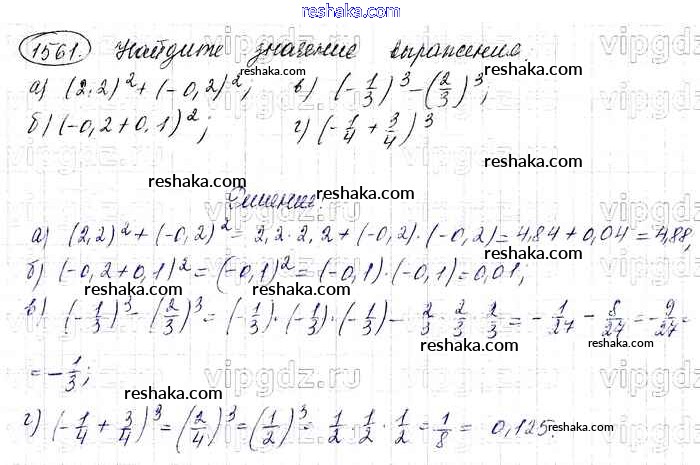 reshaka.ru
1561. Найдите значение выражения.
а) (2,2)² + (-0,2)²; в) (-1/3)³ - (2/3)³;
б) (-0,2+0,1)²; г) (-1/4 + 3/4)³
Решение:
а) (2,2)² + (-0,2)² = 2,2·2,2 + (-0,2)·(-0,2) = 4,84 + 0,04 = 4,88,
б) (-0,2+0,1)² = (-0,1)² = (-0,1)·(-0,1) = 0,01;
в) (-1/3)³ - (2/3)³ = (-1/3)·(-1/3)·(-1/3) - 2/3·2/3·2/3 = -1/27 - 8/27 = -9/27 =
= -1/3;
г) (-1/4 + 3/4)³ = (2/4)³ = (1/2)³ = 1/2·1/2·1/2 = 1/8 = 0,125.